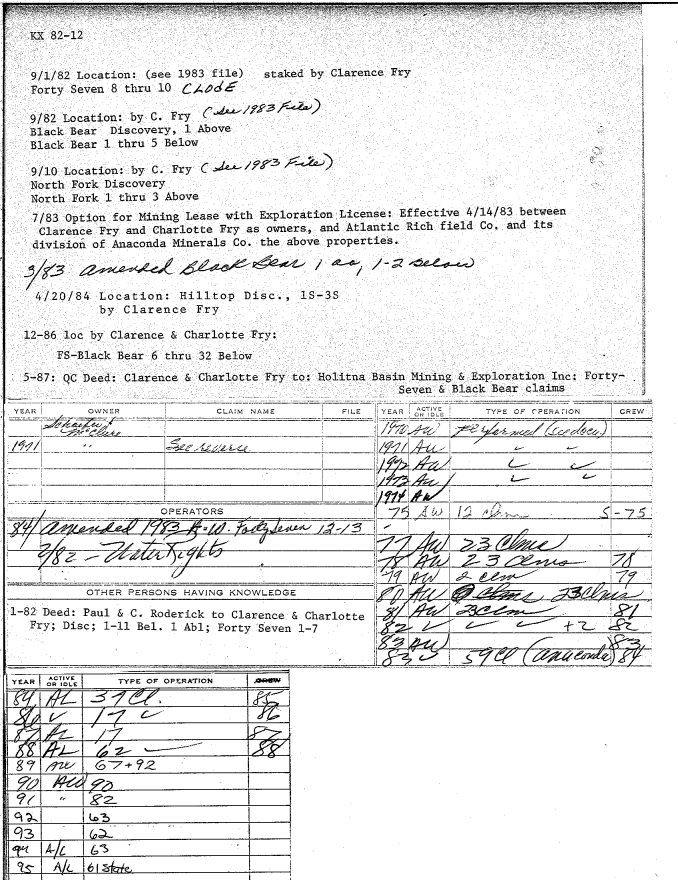 KX 82-12
9/1/82 Location: (see 1983 file) staked by Clarence Fry
Forty Seven 8 thru 10 CLODE
9/82 Location: by C. Fry (See 1983 File)
Black Bear Discovery, 1 Above
Black Bear 1 thru 5 Below
9/10 Location: by C. Fry (See 1983 File)
North Fork Discovery
North Fork 1 thru 3 Above
7/83 Option for Mining Lease with Exploration License: Effective 4/14/83 between
Clarence Fry and Charlotte Fry as owners, and Atlantic Rich field Co. and its
division of Anaconda Minerals Co. the above properties.
3/83 amended Black Bear 1 aa, 1-2 Below
4/20/84 Location: Hilltop Disc., 1S-3S
by Clarence Fry
12-86 loc by Clarence & Charlotte Fry:
FS-Black Bear 6 thru 32 Below
5-87: QC Deed: Clarence & Charlotte Fry to: Holitna Basin Mining & Exploration Inc: Forty-
Seven & Black Bear claims
YEAR OWNER CLAIM NAME FILE
Schaefer &
McClure
1971 " See reverse
OPERATORS
84 amended 1983 A.W. Forty Seven 12-13
2/82 - Water Rights
OTHER PERSONS HAVING KNOWLEDGE
1-82 Deed: Paul & C. Roderick to Clarence & Charlotte
Fry; Disc; 1-11 Bel. 1 Abl; Forty Seven 1-7
YEAR ACTIVE OR IDLE TYPE OF OPERATION CREW
1970 AW performed (see docu)
1971 AW " "
1972 AW ✓ ✓
1973 AW " "
1974 AW
75 AW 12 clms 5-75
77 AW 23 Clms
78 AW 23 Clms 78
79 AW 2 clm 79
80 AW clms 23 clms
81 AW 23 clm 81
82 ✓ ✓ ✓ ✓ +2 82
83 AW 83
83 ✓ 59 Cl (anaconda) 84
YEAR ACTIVE OR IDLE TYPE OF OPERATION CREW
84 AL 37 Cl. 85
86 ✓ 17 ✓ 86
87 AL 17 87
88 AL 62 ✓ 88
89 AW 67+92
90 AW 90
91 " 82
92 63
93 62
94 A/L 63
95 A/L 61 State